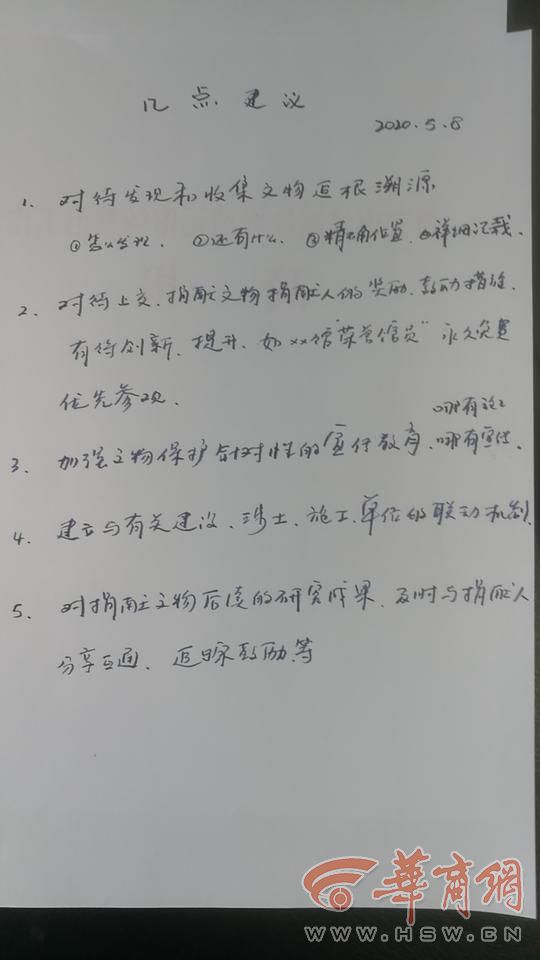 几点建议
2020.5.8
1. 对待发现和收集文物追根溯源
①怎么发现. ②还有什么. ③精确位置. ④详细记载.
2. 对待上交、捐献文物捐献人的奖励、鼓励措施.
有待创新、提升. 如××馆"荣誉馆员"永久免费
优先参观.
哪有施工
3. 加强文物保护针对性的宣传教育、哪有宣传.
4. 建立与有关建设、涉土、施工、单位的联动机制.
5. 对捐献文物后续的研究成果、及时与捐献人
分享互通、追踪鼓励等
华商网
WWW.HSW.CN